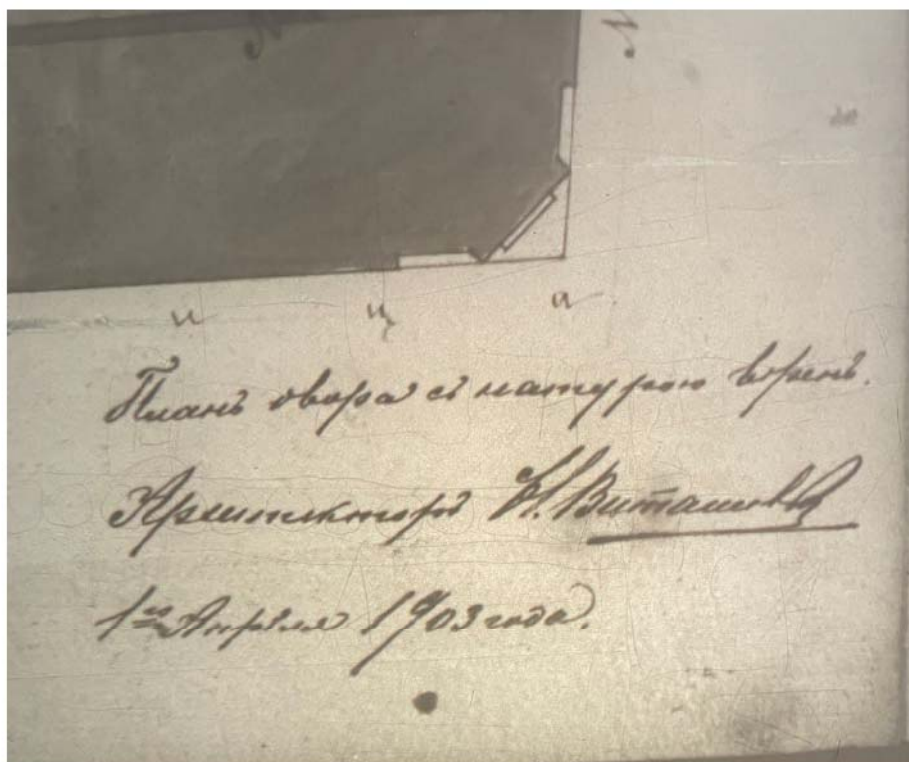 и ц а
Планъ двора съ натурою вѣренъ.
Архитекторъ
1го Апрѣля 1903 года.